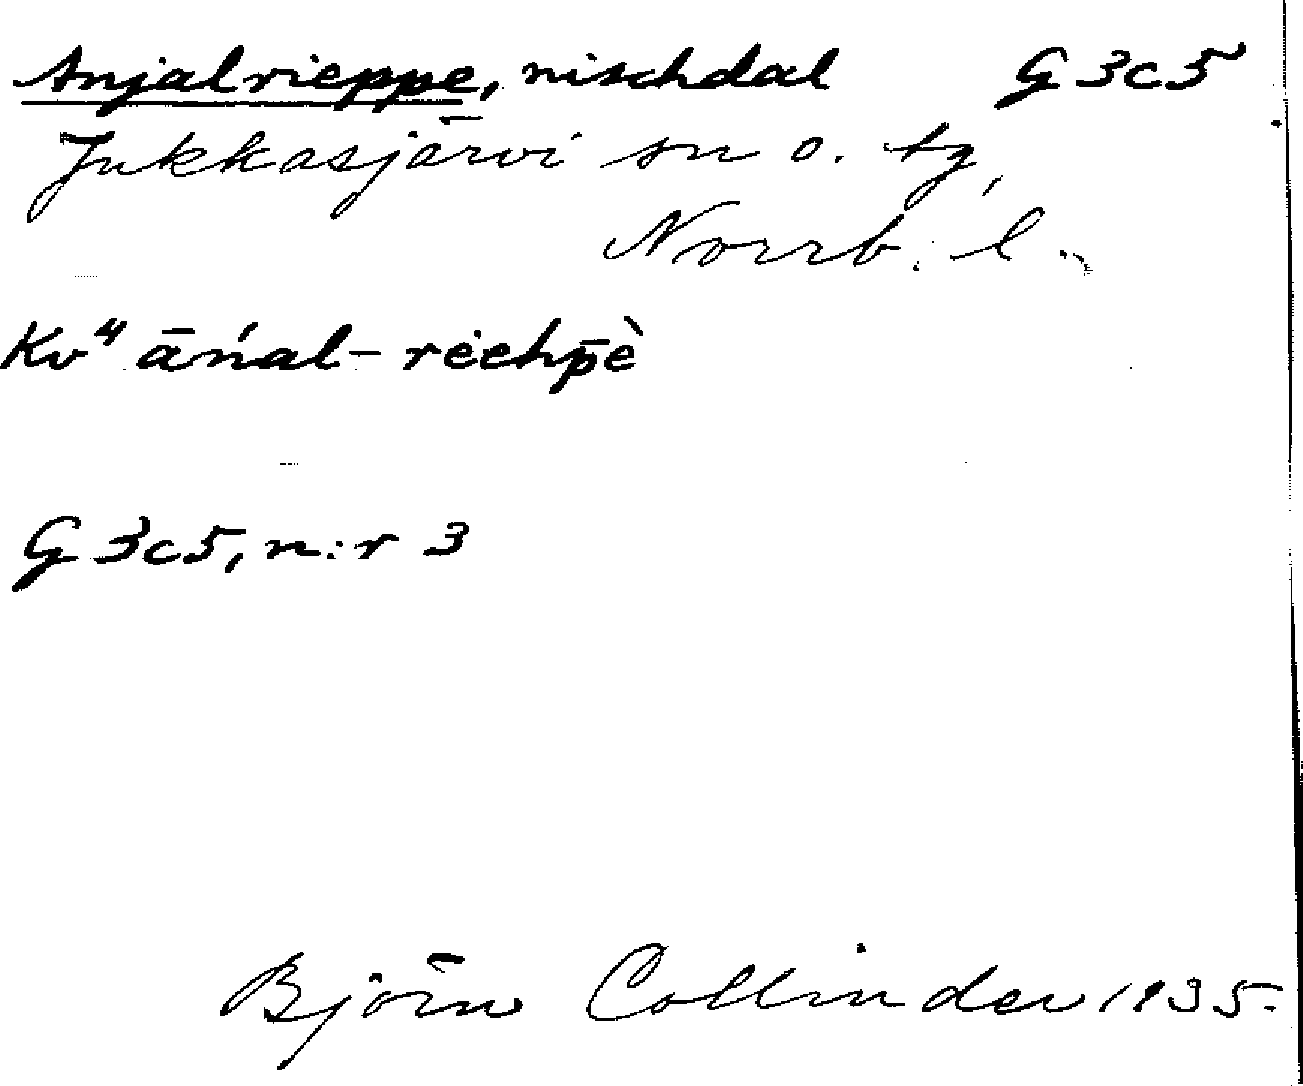 Anjalrieppe, nischdal G 3c5
Jukkasjärvi sn o. tg,
Norrb. l.
Kv" āńal-rèehp̄è
G 3c5, n:r 3
Björn Collinder 1935.